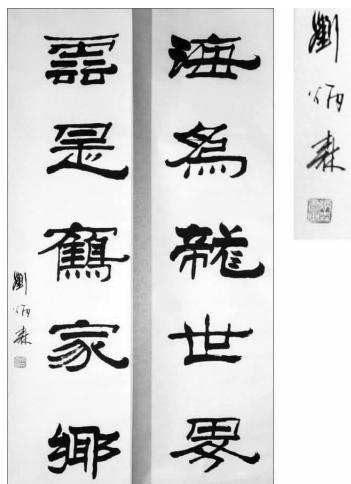 海為龍世界
雲是鶴家鄉
劉炳森
劉炳森